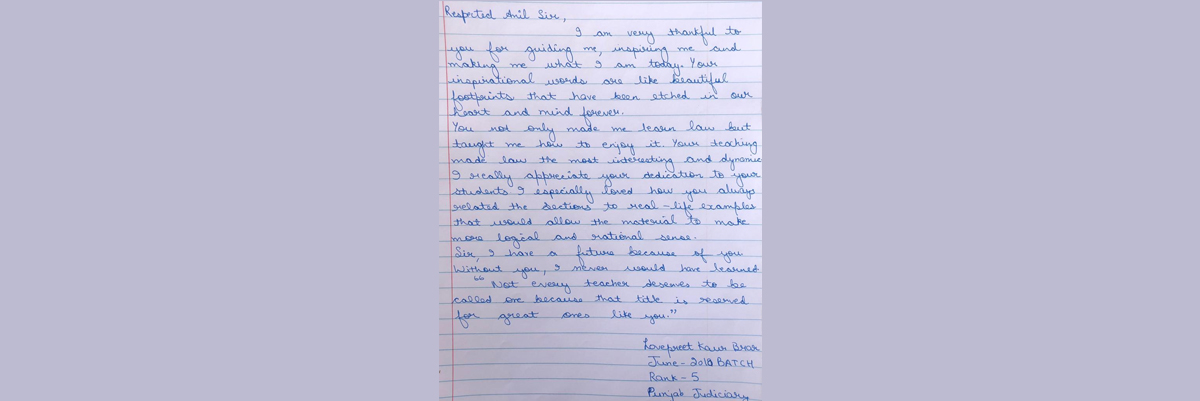 Respected Anil Sir,
I am very thankful to
you for guiding me, inspiring me and
making me what I am today. Your
inspirational words are like beautiful
footprints that have been etched in our
heart and mind forever.
You not only made me learn law but
taught me how to enjoy it. Your teaching
made law the most interesting and dynamic
I really appreciate your dedication to your
students I especially loved how you always
related the sections to real-life examples
that would allow the material to make
more logical and rational sense.
Sir, I have a future because of you
Without you, I never would have learned
"Not every teacher deserves to be
called one because that title is reserved
for great ones like you."
Lovepreet Kaur Brar
June - BATCH
Rank - 5
Punjab Judiciary